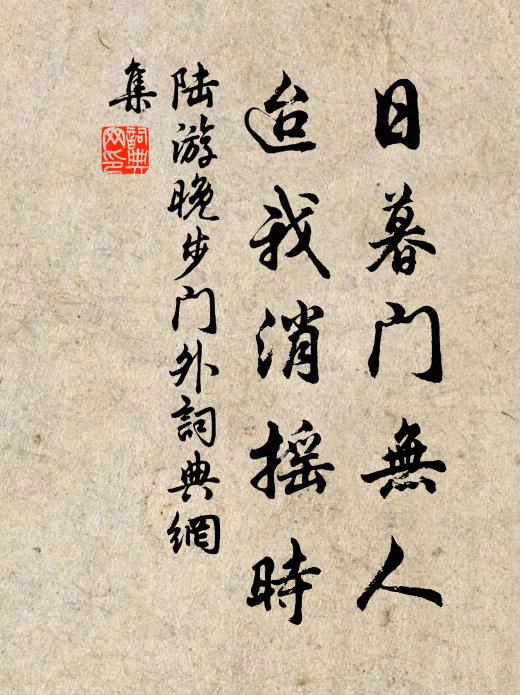 日暮门無人
迨我消摇時
陆游晚步门外詞典網
集
詞典
网印